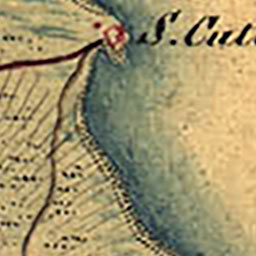 S. Cat